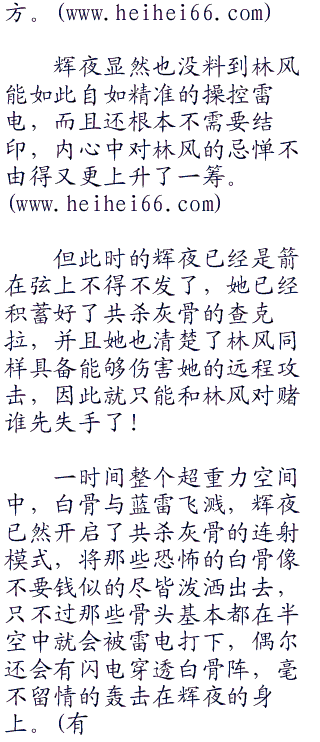 方。(www.heihei66.com)
辉夜显然也没料到林风
能如此自如精准的操控雷
电，而且还根本不需要结
印，内心中对林风的忌惮不
由得又更上升了一筹。
(www.heihei66.com)
但此时的辉夜已经是箭
在弦上不得不发了，她已经
积蓄好了共杀灰骨的查克
拉，并且她也清楚了林风同
样具备能够伤害她的远程攻
击，因此就只能和林风对赌
谁先失手了！
一时间整个超重力空间
中，白骨与蓝雷飞溅，辉夜
已然开启了共杀灰骨的连射
模式，将那些恐怖的白骨像
不要钱似的尽皆泼洒出去，
只不过那些骨头基本都在半
空中就会被雷电打下，偶尔
还会有闪电穿透白骨阵，毫
不留情的轰击在辉夜的身
上。(有